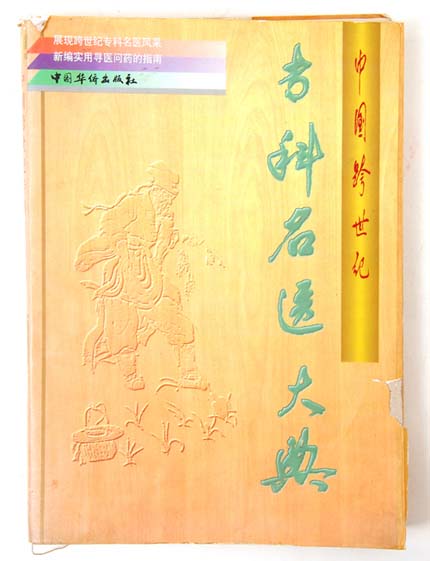 展现跨世纪专科名医风采
新编实用寻医问药的指南
中国华侨出版社
中国跨世纪
专科名医大典